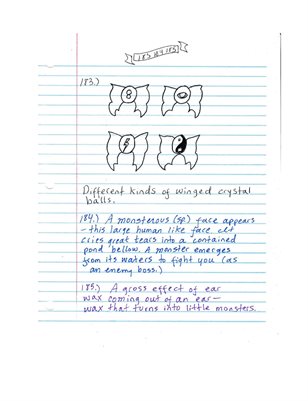 183 184 185
183.)
8
8
Different kinds of winged crystal
balls.
184.) A monsterous (sp) face appears
- this large human like face. It
cries great tears into a contained
pond bellow. A monster emerges
from its waters to fight you (as
an enemy boss.)
185.) A gross effect of ear
wax coming out of an ear-
wax that turns into little monsters.